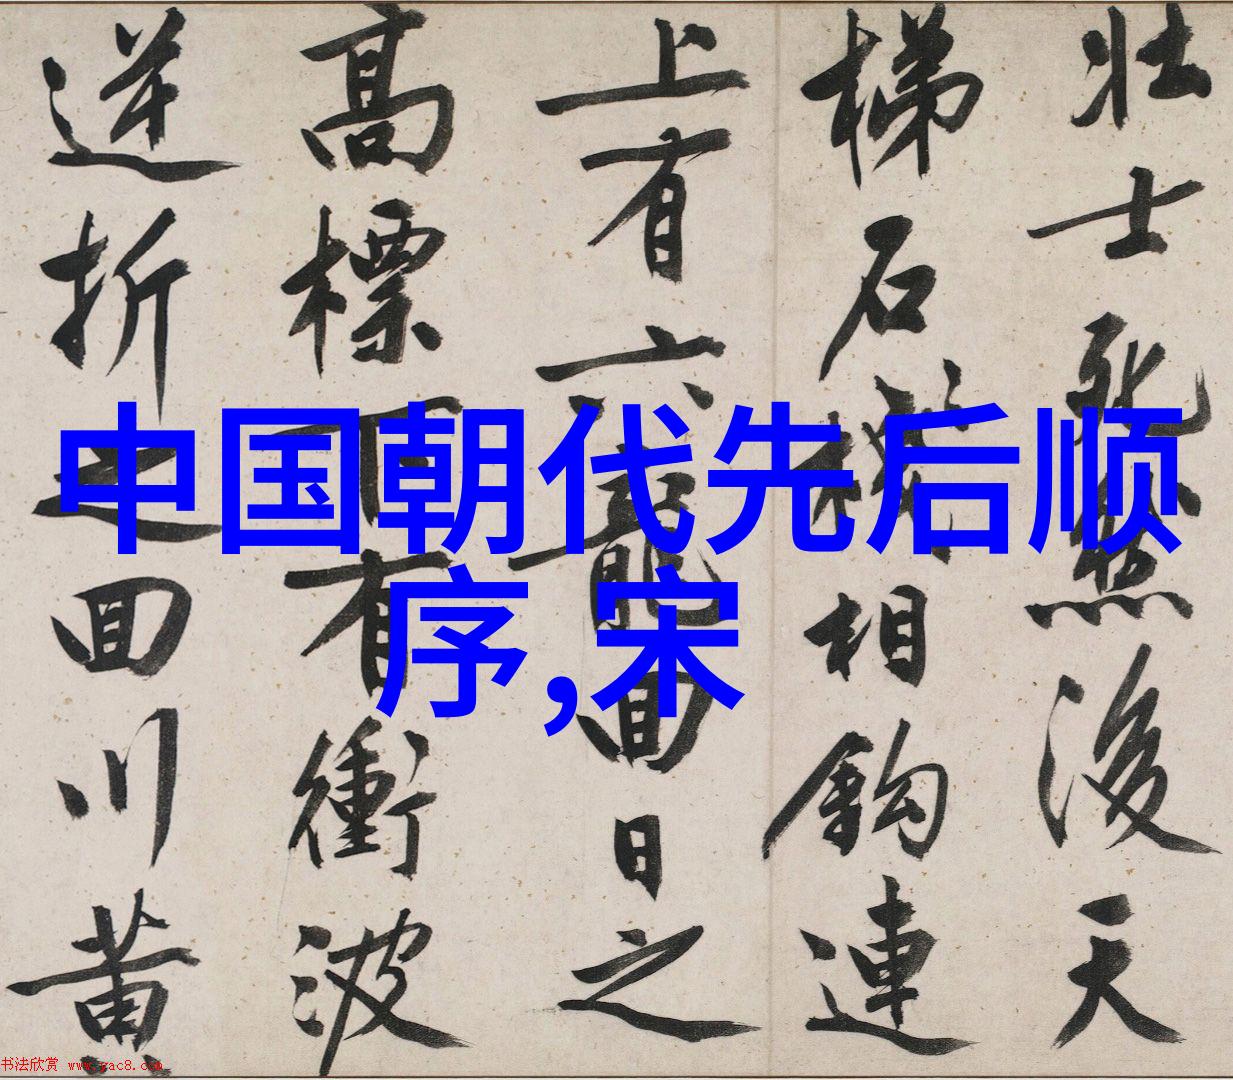 壮士死然後天
梯石棧相鈎連
上有六龍回日之
高標下有衝波
逆折之回川黄
中国朝代先后顺
序,宋
书法欣赏 www.yac8.com